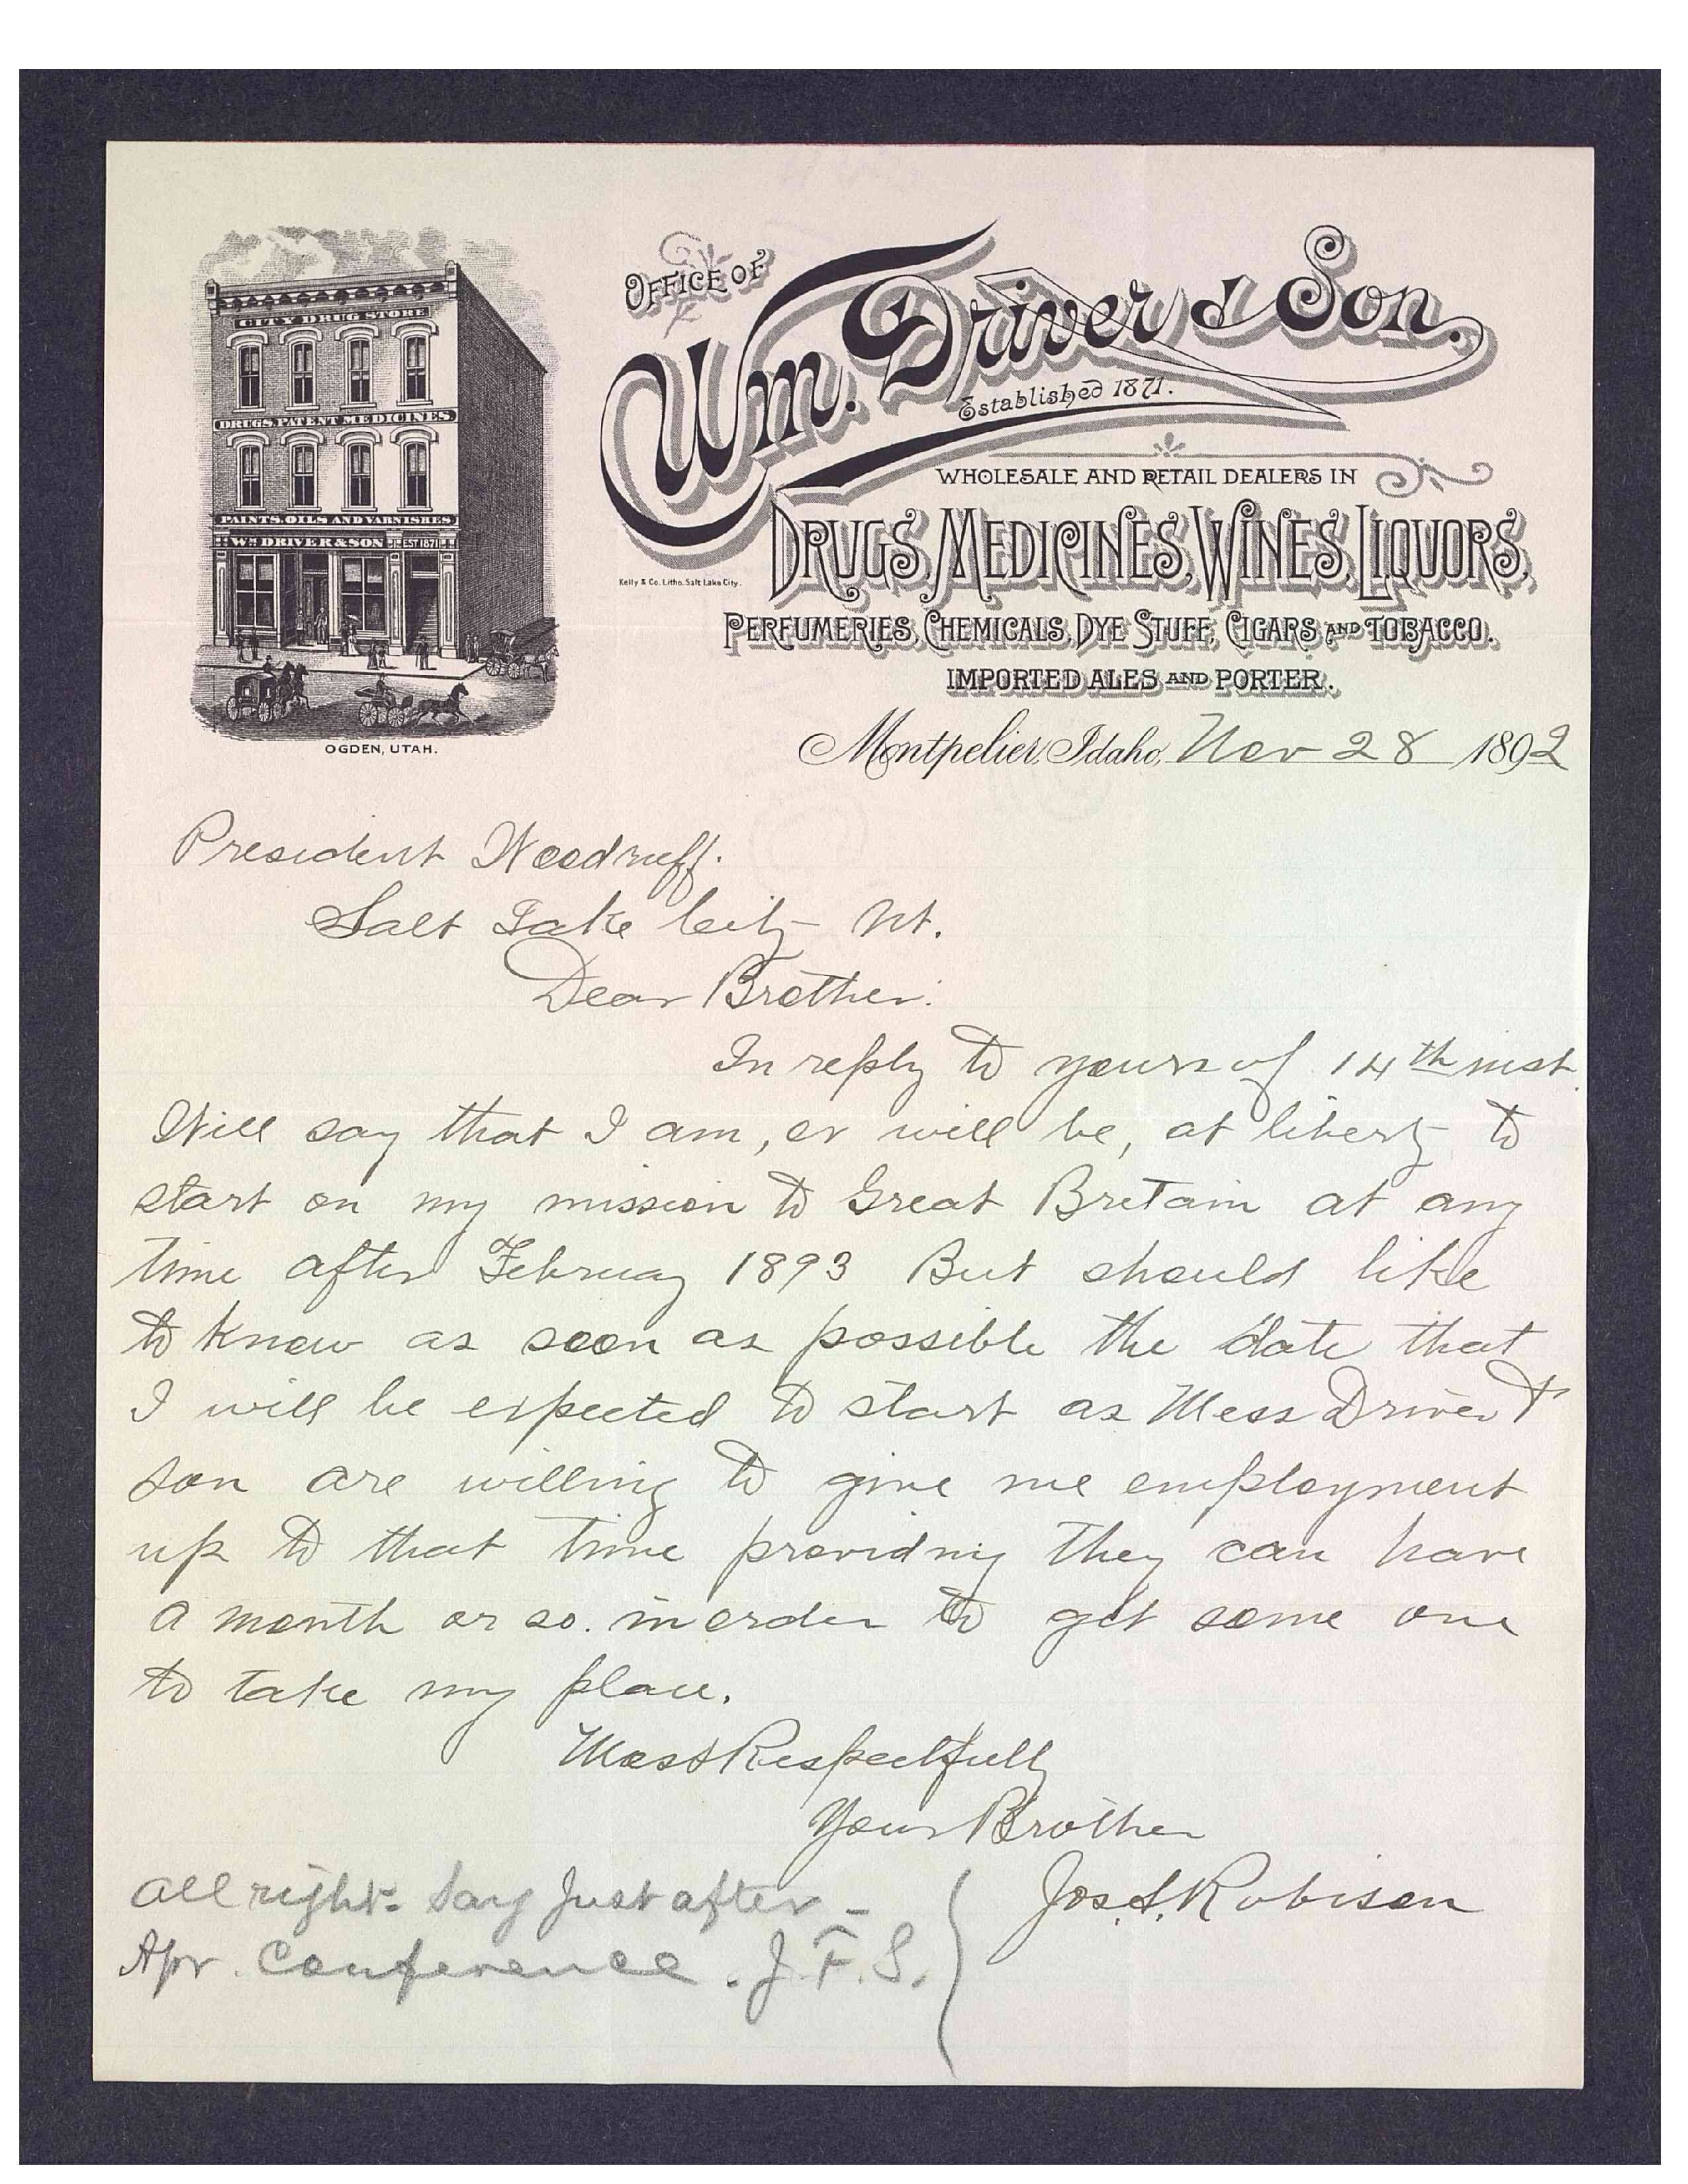 OFFICE OF
Wm. Driver & Son.
Established 1871.
WHOLESALE AND RETAIL DEALERS IN
DRUGS, MEDICINES, WINES, LIQUORS,
PERFUMERIES, CHEMICALS, DYE STUFF, CIGARS AND TOBACCO.
IMPORTED ALES AND PORTER.
Kelly & Co. Litho. Salt Lake City.
CITY DRUG STORE
DRUGS, PATENT MEDICINES,
PAINTS, OILS AND VARNISHES
WM DRIVER & SON EST 1871
OGDEN, UTAH.
Montpelier, Idaho, Nov 28 1892
President Woodruff.
Salt Lake City Ut.
Dear Brother:
In reply to yours of 14th inst.
Will say that I am, or will be, at liberty to
start on my mission to Great Bretain at any
time after February 1893 But should like
to know as soon as possible the date that
I will be expected to start as Mess Driver &
son are willing to give me employment
up to that time providing they can have
a month or so. in order to get some one
to take my place.
Most Respectfully
Your Brother
Jos. S. Robison
All right. Say Just after
Apr. Conference. J. F. S.